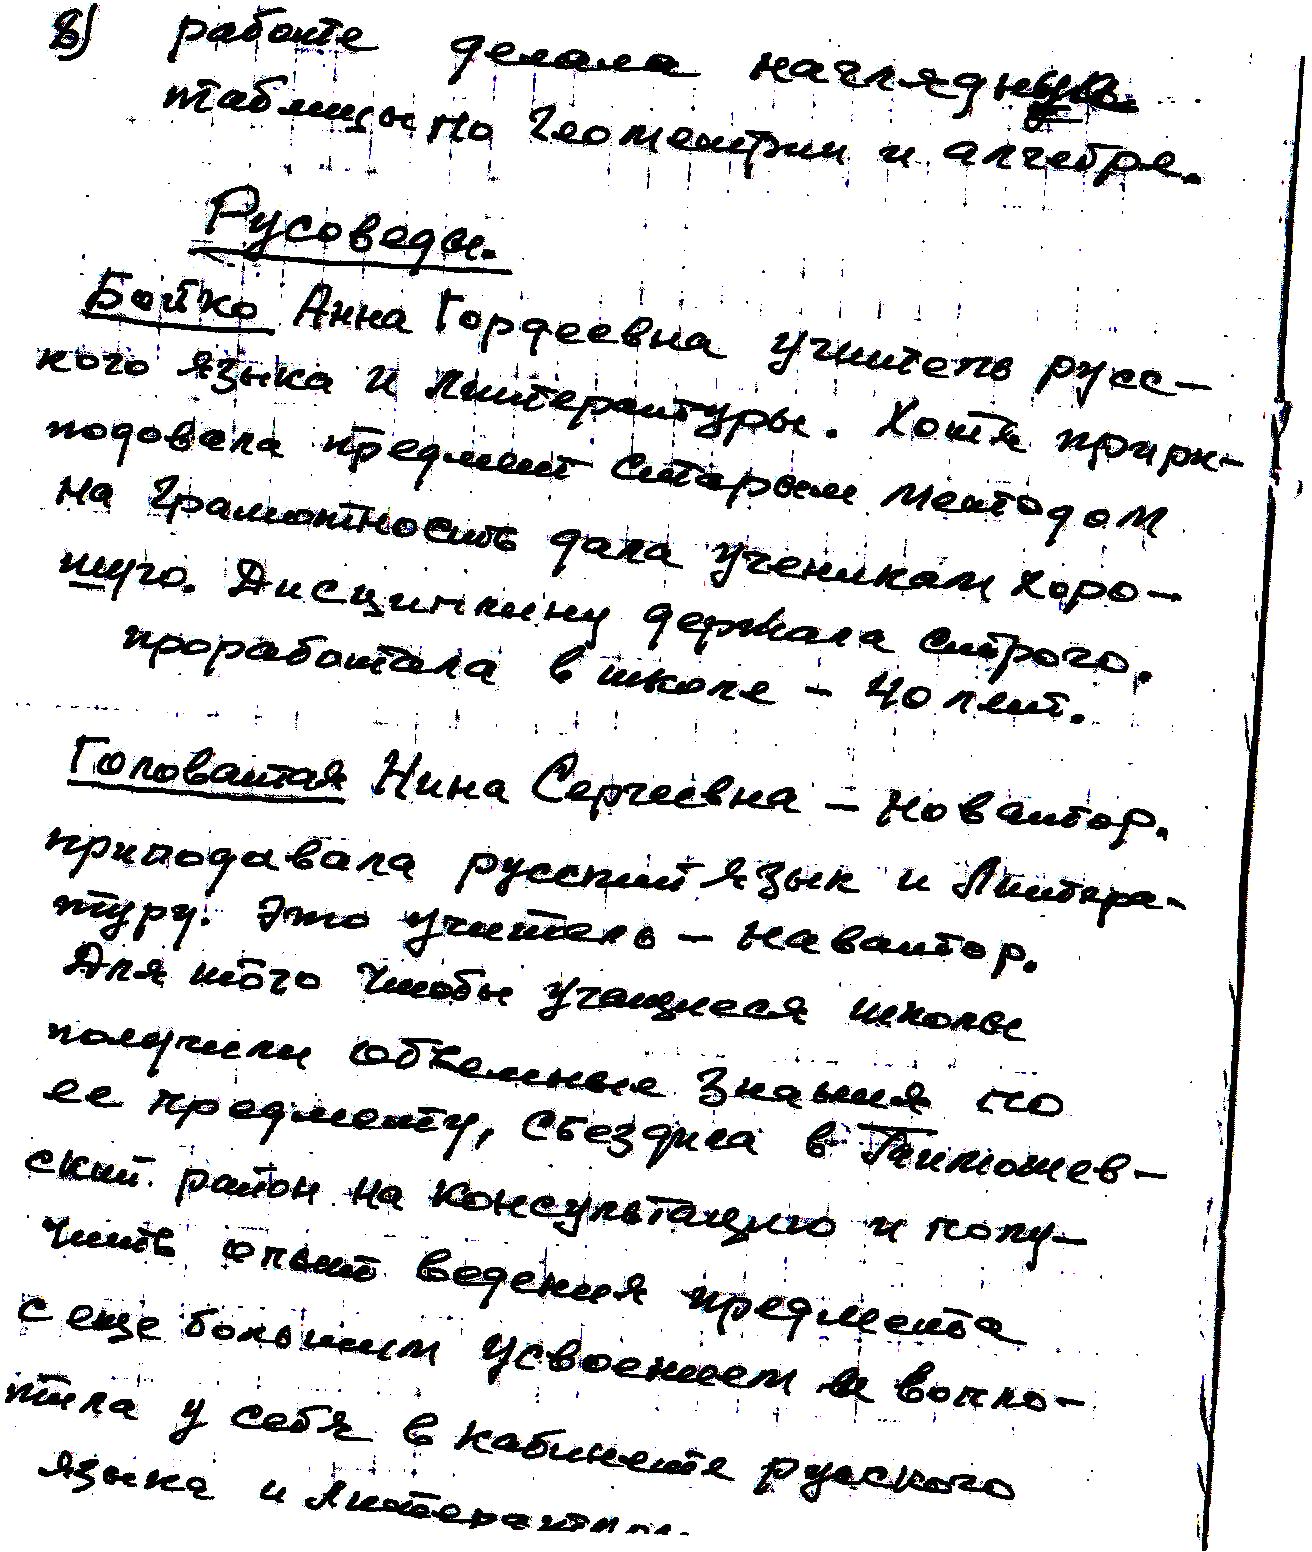 8) работе делала наглядную
таблицы по геометрии и алгебре.
Русоведы.
Бойко Анна Гордеевна учитель русс-
кого языка и литературы. Хотя
подовала предмет старым методом
на грамотность дала ученикам хоро-
шую. Дисциплину держала строго.
проработала в школе - 40 лет.
Головатая Нина Сергеевна - новатор.
приподавала русский язык и Литера-
туру. Это учитель - наватор.
Для того чтобы учащиеся школы
получили объемные знания по
ее предмету, съездила в Тимошев-
ский район на консультацию и полу-
чить опыт ведения предмета
с еще большим усвоением и вопло-
тила у себя в кабинете русского
языка и литературы.